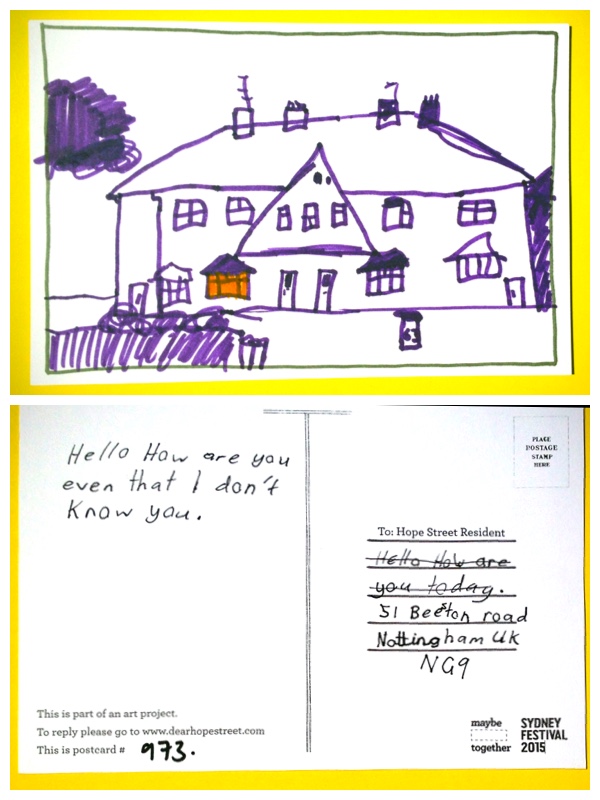 63
Hello How are you
even that I don't
Know you.
PLACE
POSTAGE
STAMP
HERE
To: Hope Street Resident
Hello How are
you today.
51 Beeston road
Nottingham UK
NG9
This is part of an art project.
To reply please go to www.dearhopestreet.com
This is postcard # 973.
maybe
together
SYDNEY
FESTIVAL
2015